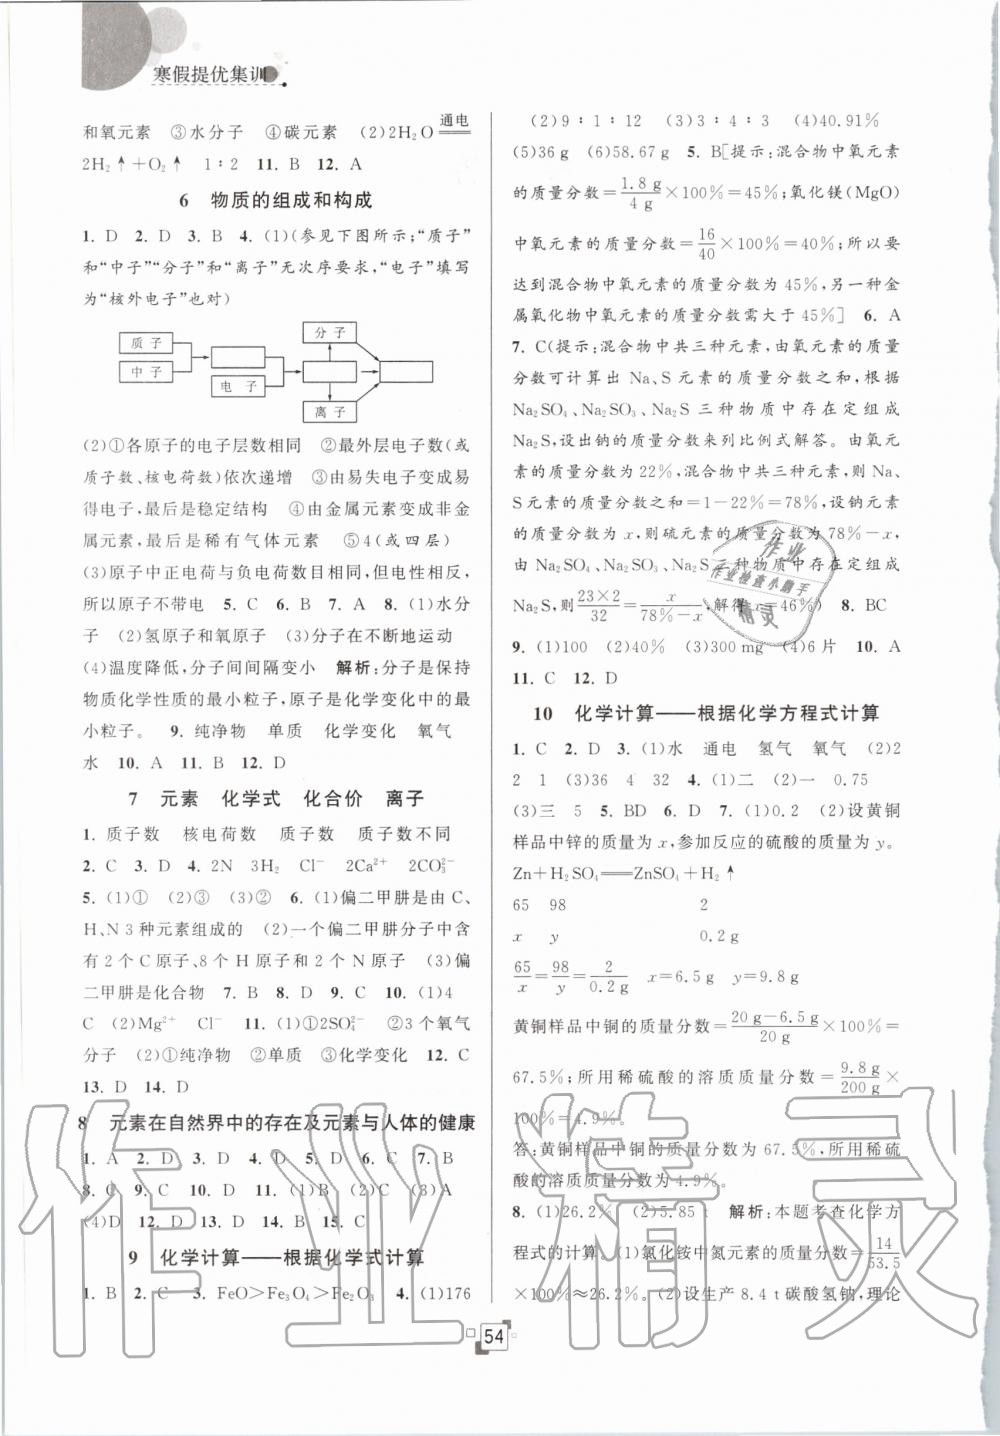 寒假提优集训
和氧元素 ③水分子 ④碳元素 (2)2H₂O 通电
2H₂↑+O₂↑ 1∶2 11. B 12. A
6 物质的组成和构成
1. D 2. D 3. B 4. (1)(参见下图所示;“质子”
和“中子”“分子”和“离子”无次序要求,“电子”填写
为“核外电子”也对)
质子
中子
电子
分子
离子
(2)①各原子的电子层数相同 ②最外层电子数(或
质子数、核电荷数)依次递增 ③由易失电子变成易
得电子,最后是稳定结构 ④由金属元素变成非金
属元素,最后是稀有气体元素 ⑤4(或四层)
(3)原子中正电荷与负电荷数目相同,但电性相反,
所以原子不带电 5. C 6. B 7. A 8. (1)水分
子 (2)氢原子和氧原子 (3)分子在不断地运动
(4)温度降低,分子间间隔变小 解析:分子是保持
物质化学性质的最小粒子,原子是化学变化中的最
小粒子。 9. 纯净物 单质 化学变化 氧气
水 10. A 11. B 12. D
7 元素 化学式 化合价 离子
1. 质子数 核电荷数 质子数 质子数不同
2. C 3. D 4. 2N 3H₂ Cl⁻ 2Ca²⁺ 2CO₃²⁻
5. (1)① (2)③ (3)② 6. (1)偏二甲肼是由C、
H、N 3种元素组成的 (2)一个偏二甲肼分子中含
有2个C原子、8个H原子和2个N原子 (3)偏
二甲肼是化合物 7. B 8. D 9. C 10. (1)4
C (2)Mg²⁺ Cl⁻ 11. (1)①2SO₄²⁻ ②3个氧气
分子 (2)①纯净物 ②单质 ③化学变化 12. C
13. D 14. D
8 元素在自然界中的存在及元素与人体的健康
1. A 2. D 3. D 4. D 5. D 6. C 7. B
8. C 9. C 10. D 11. (1)B (2)C (3)A
(4)D 12. D 13. D 14. B 15. C
9 化学计算——根据化学式计算
1. B 2. C 3. FeO>Fe₃O₄>Fe₂O₃ 4. (1)176
(2)9∶1∶12 (3)3∶4∶3 (4)40.91%
(5)36 g (6)58.67 g 5. B[提示:混合物中氧元素
的质量分数=1.8 g/4 g×100%=45%;氧化镁(MgO)
中氧元素的质量分数=16/40×100%=40%;所以要
达到混合物中氧元素的质量分数为45%,另一种金
属氧化物中氧元素的质量分数需大于45%] 6. A
7. C(提示:混合物中共三种元素,由氧元素的质量
分数可计算出Na、S元素的质量分数之和,根据
Na₂SO₄、Na₂SO₃、Na₂S三种物质中存在定组成
Na₂S,设出钠的质量分数来列比例式解答。由氧元
素的质量分数为22%,混合物中共三种元素,则Na、
S元素的质量分数之和=1-22%=78%,设钠元素
的质量分数为x,则硫元素的质量分数为78%-x,
由Na₂SO₄、Na₂SO₃、Na₂S三种物质中存在定组成
Na₂S,则23×2/32=x/78%-x,解得x=46%) 8. BC
9. (1)100 (2)40% (3)300 mg (4)6片 10. A
11. C 12. D
10 化学计算——根据化学方程式计算
1. C 2. D 3. (1)水 通电 氢气 氧气 (2)2
2 1 (3)36 4 32 4. (1)二 (2)一 0.75
(3)三 5 5. BD 6. D 7. (1)0.2 (2)设黄铜
样品中锌的质量为x,参加反应的硫酸的质量为y。
Zn+H₂SO₄══ZnSO₄+H₂↑
65 98 2
x y 0.2 g
65/x=98/y=2/0.2 g x=6.5 g y=9.8 g
黄铜样品中铜的质量分数=20 g-6.5 g/20 g×100%=
67.5%;所用稀硫酸的溶质质量分数=9.8 g/200 g×
100%=4.9%。
答:黄铜样品中铜的质量分数为67.5%,所用稀硫
酸的溶质质量分数为4.9%。
8. (1)26.2% (2)5.85 t 解析:本题考查化学方
程式的计算 (1)氯化铵中氮元素的质量分数=14/53.5
×100%≈26.2%。(2)设生产8.4 t碳酸氢钠,理论
54
作业精灵
作业
作业检查小助手
精灵